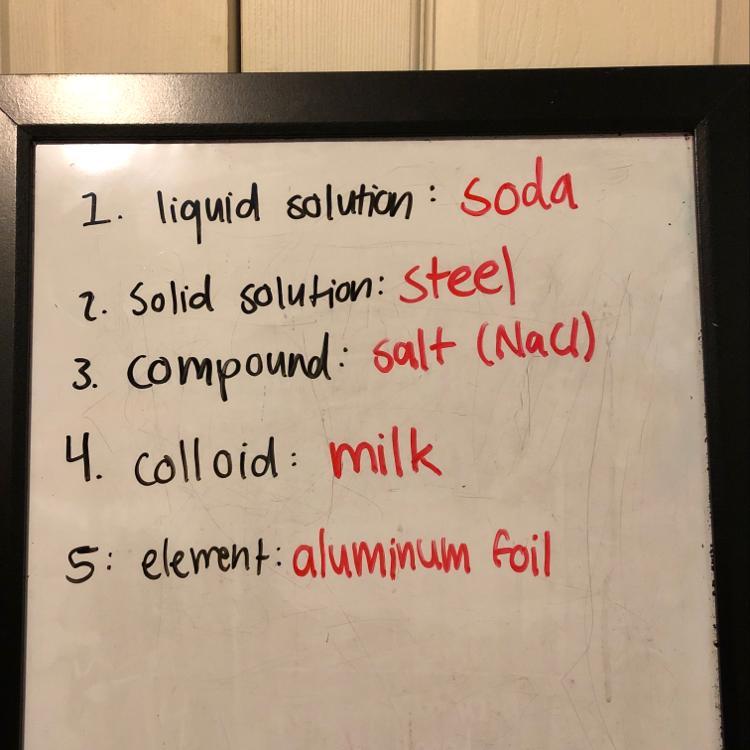 1. liquid solution: soda
2. Solid solution: steel
3. compound: salt (NaCl)
4. colloid: milk
5: element: aluminum foil